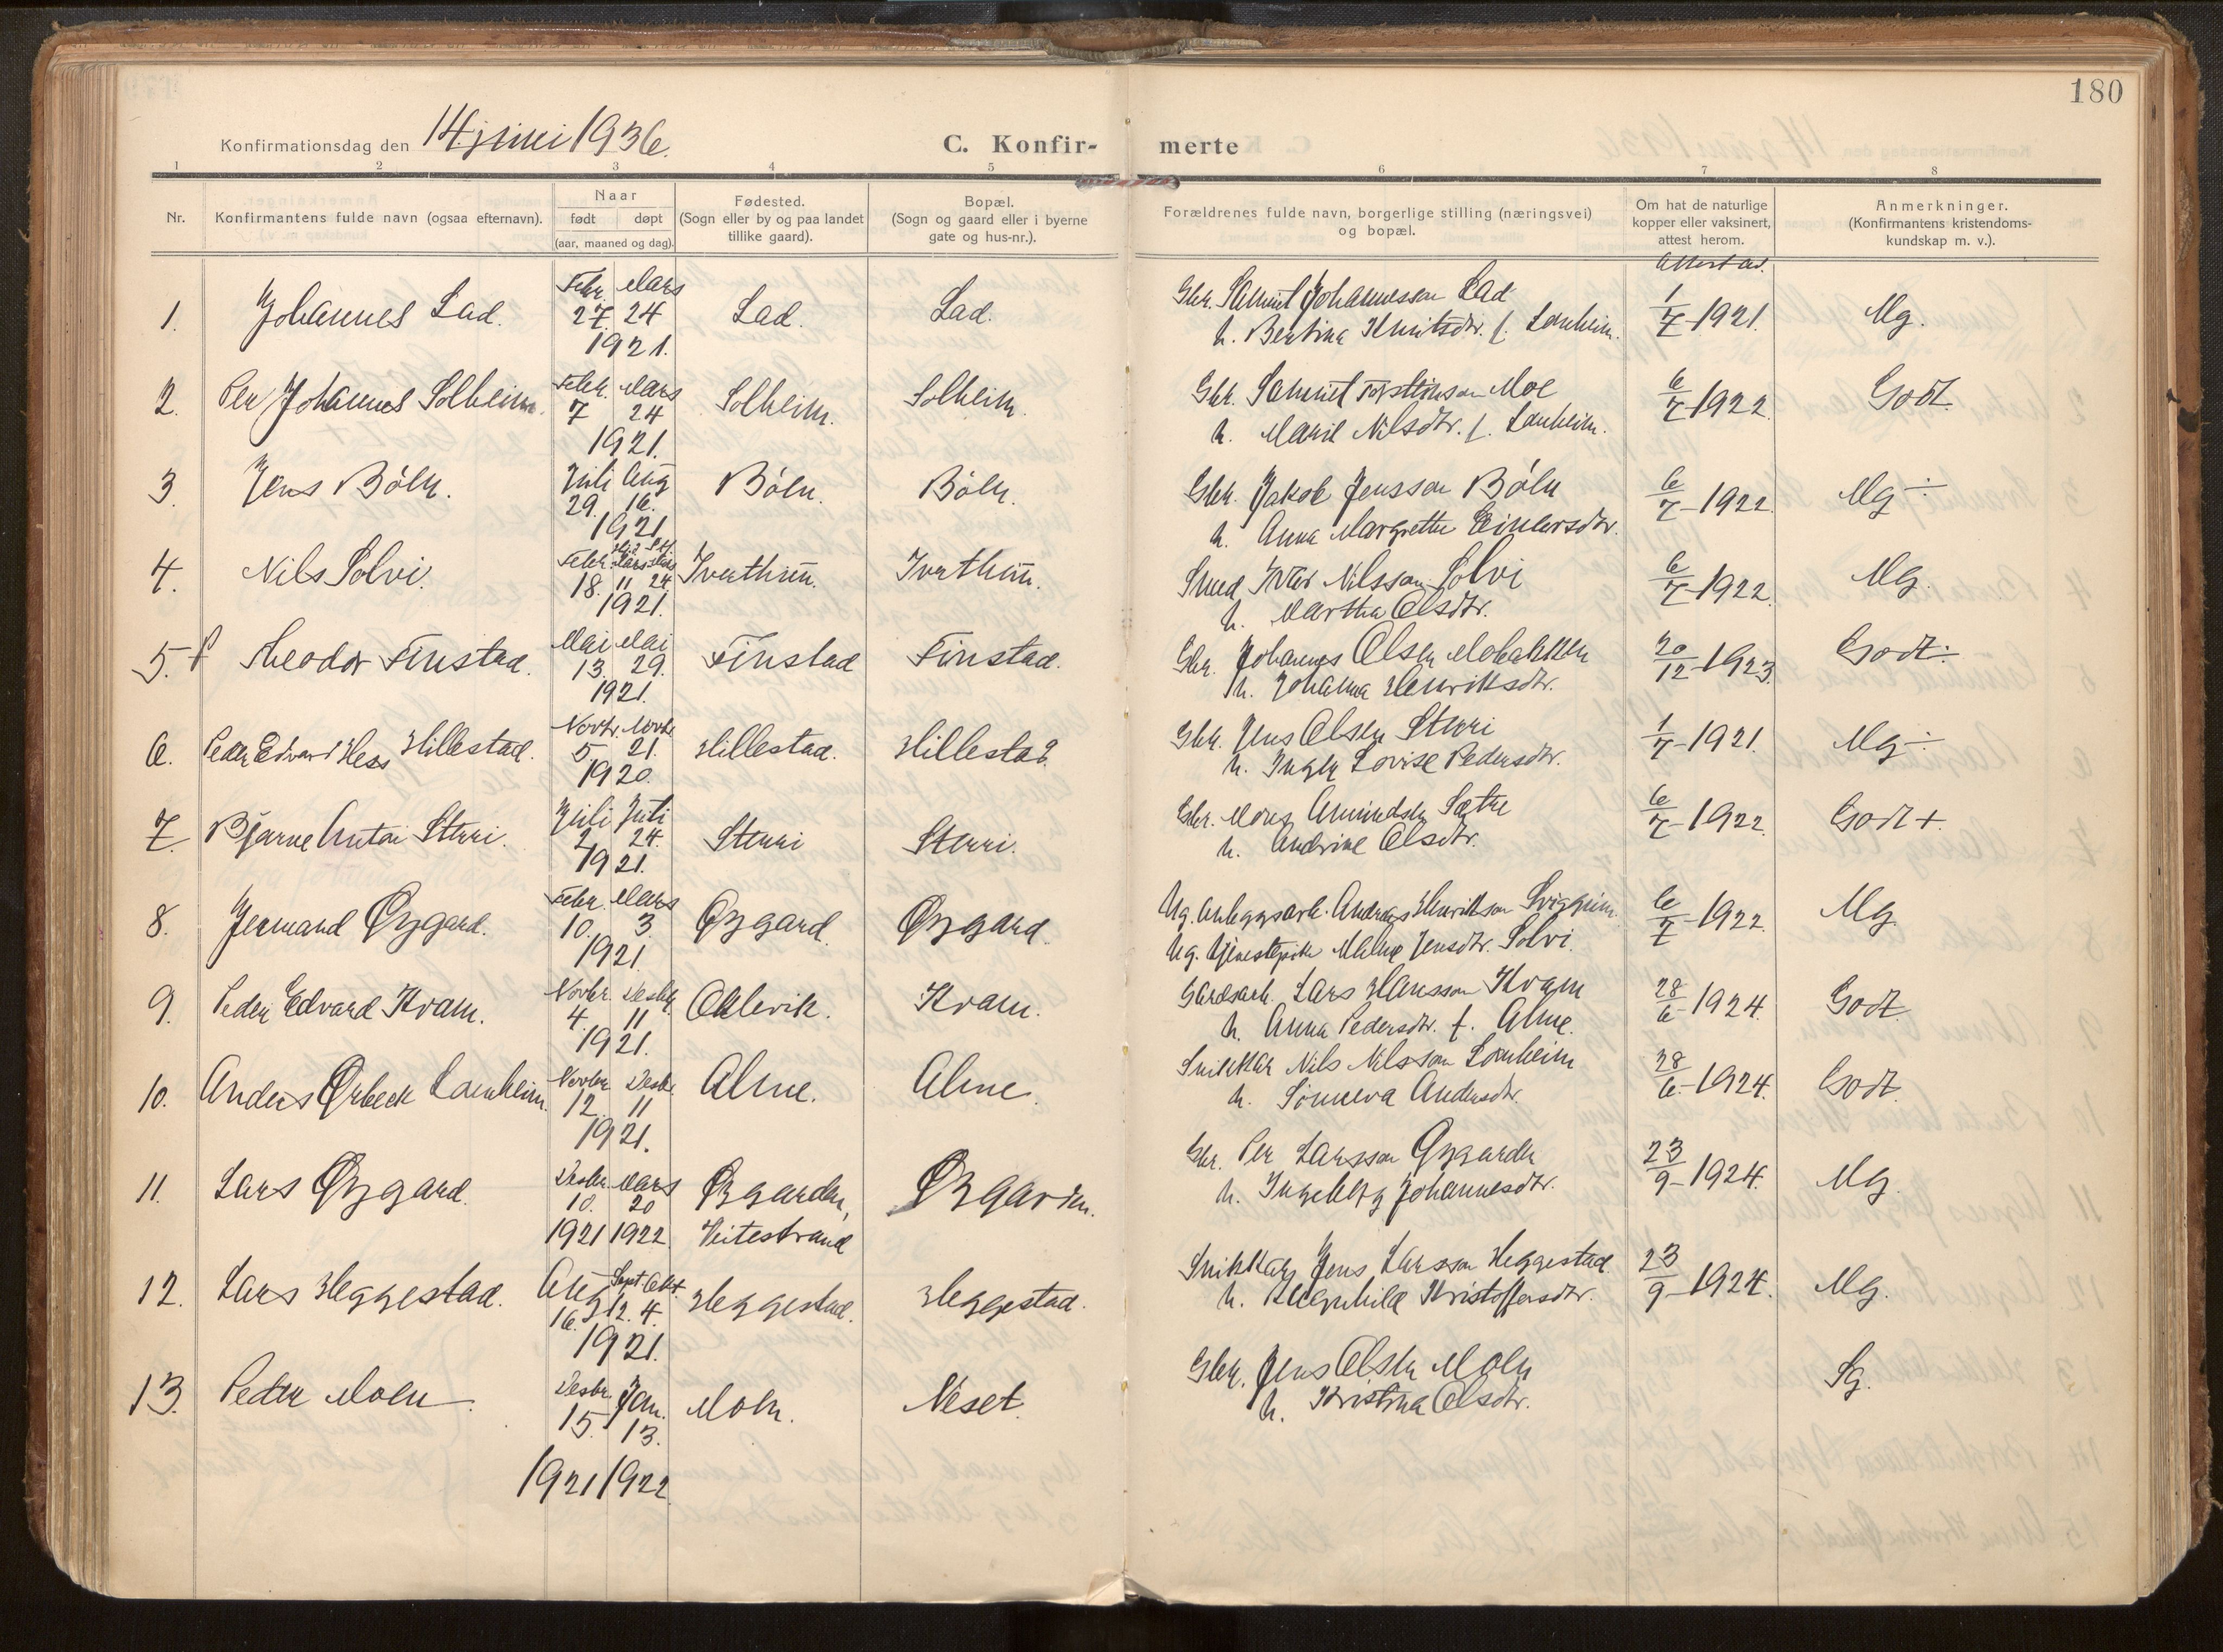 180
Konfirmationsdag den 14. juni 1936.
C. Konfir- merte
1 2 3 4 5 6 7 8
Nr.
Konfirmantens fulde navn (ogsaa efternavn).
Naar
født døpt
(aar, maaned og dag).
Fødested.
(Sogn eller by og paa landet
tillike gaard).
Bopæl.
(Sogn og gaard eller i byerne
gate og hus-nr.).
Forældrenes fulde navn, borgerlige stilling (næringsvei)
og bopæl.
Om hat de naturlige
kopper eller vaksinert,
attest herom.
Anmerkninger.
(Konfirmantens kristendoms-
kundskap m. v.).
Attest av.
1. Johannes Lad. Febr. 27. Mars 24 1921. Lad. Lad.
Gbr. Samuel Johannesson Lad
h. Bertina Knutsdtr. f. Lauheim.
1/7-1921. Mg.
2. Per Johannes Solheim. Febr. 7 Mars 24 1921. Solheim. Solheim.
Gbr. Samuel Torsteinson Moe
h. Marie Nilsdtr. f. Lauheim.
6/7-1922. Godt.
3. Jens Bólm. Juli 29. Aug 16. 1921 Bólm. Bólm.
Gbr. Jakob Jensson Bólm
h. Anna Margrethe Einarsdtr.
6/7-1922. Mg ÷
4. Nils Solvi. Febr. 18. Mars 11 24. 1921. Iverthun. Iverthun.
Smed Ivar Nilsson Solvi
h. Martha Olsdtr.
6/7-1922. Mg.
5. Theodor Finstad. Mai 13. Mai 29. 1921. Finstad Finstad.
Gbr. Johannes Olsen Mobakken
h. Johanna Henriksdtr.
20/12-1923. Godt ÷
6. Peder Edvard Hess Hillestad. Novbr. 5. Novbr. 21. 1920. Hillestad. Hillestad.
Gbr. Jens Olsen Sturi
h. Inger Lovise Pedersdtr.
1/7-1921. Mg ÷
7. Bjarne Anton Sturi. Juli 2 Juli 24. 1921. Sturi Sturi.
Gbr. Mons Amundsen Sætre
h. Andrine Olsdtr.
6/7-1922. Godt +.
8. Jermand Øygard. Febr. 10. Mars 3. 1921 Øygard. Øygard.
Ug. Anleggsarb. Andreas Henrikson Sviggum.
Ug. tjenestepike Malene Jensdtr. Solvi.
6/7-1922. Mg.
9. Peder Edvard Kvam. Novbr. 4. Desbr. 11 1921. Oklevik. Kvam.
Gårdsarb. Lars Hansson Kvam
h. Anna Pedersdtr. f. Alme.
28/6-1924. Godt.
10. Anders Ørbeck Lauheim. Novbr. 12. Desbr. 11 1921. Alme. Alme.
Snikkar Nils Nilsson Lauheim
h. Sunneva Andersdtr.
28/6-1924. Godt.
11. Lars Øygard. Desbr. 10. 1921 Mars 20 1922. Øygarden, Veitestrand Øygarden.
Gbr. Per Larsson Øygarden
h. Ingeborg Johannesdtr.
23/9-1924. Mg.
12. Lars Heggestad. Aug 16. Sept. 12. Okt. 4. 1921. Heggestad. Heggestad.
Snikkar Jens Larsson Heggestad
h. Ragnhild Kristoffersdtr.
23/9-1924. Mg.
13. Peder Molm. Desbr. 15. 1921 Jan. 13. 1922. Molm. Neset.
Gbr. Jens Olsen Molm
h. Kristina Olsdtr.
Sg.